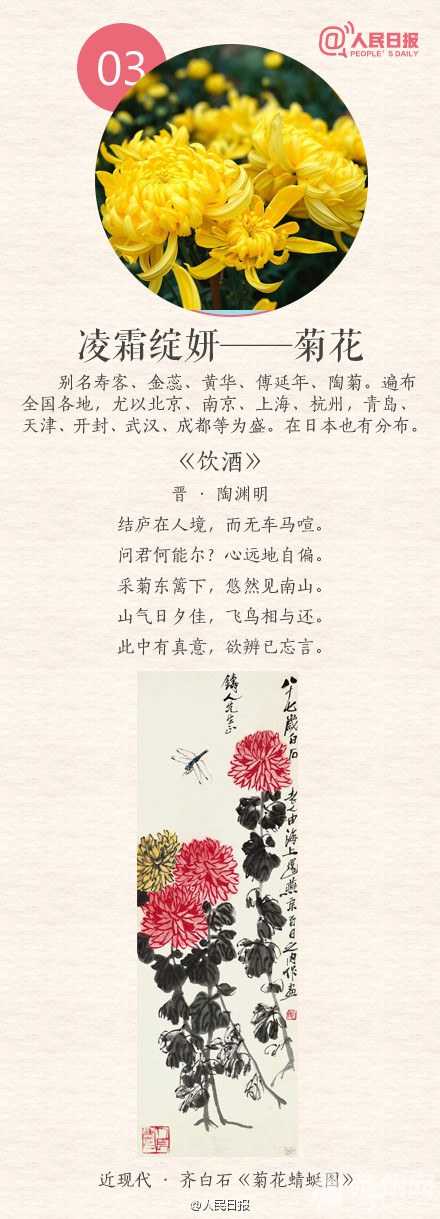 03
@人民日报
PEOPLE'S DAILY
凌霜绽妍——菊花
别名寿客、金蕊、黄华、傅延年、陶菊。遍布
全国各地，尤以北京、南京、上海、杭州，青岛、
天津、开封、武汉、成都等为盛。在日本也有分布。
《饮酒》
晋 · 陶渊明
结庐在人境，而无车马喧。
问君何能尔？心远地自偏。
采菊东篱下，悠然见南山。
山气日夕佳，飞鸟相与还。
此中有真意，欲辨已忘言。
八十七岁白石老人由海上还燕京百日之内作画
近现代 · 齐白石《菊花蜻蜓图》
@人民日报